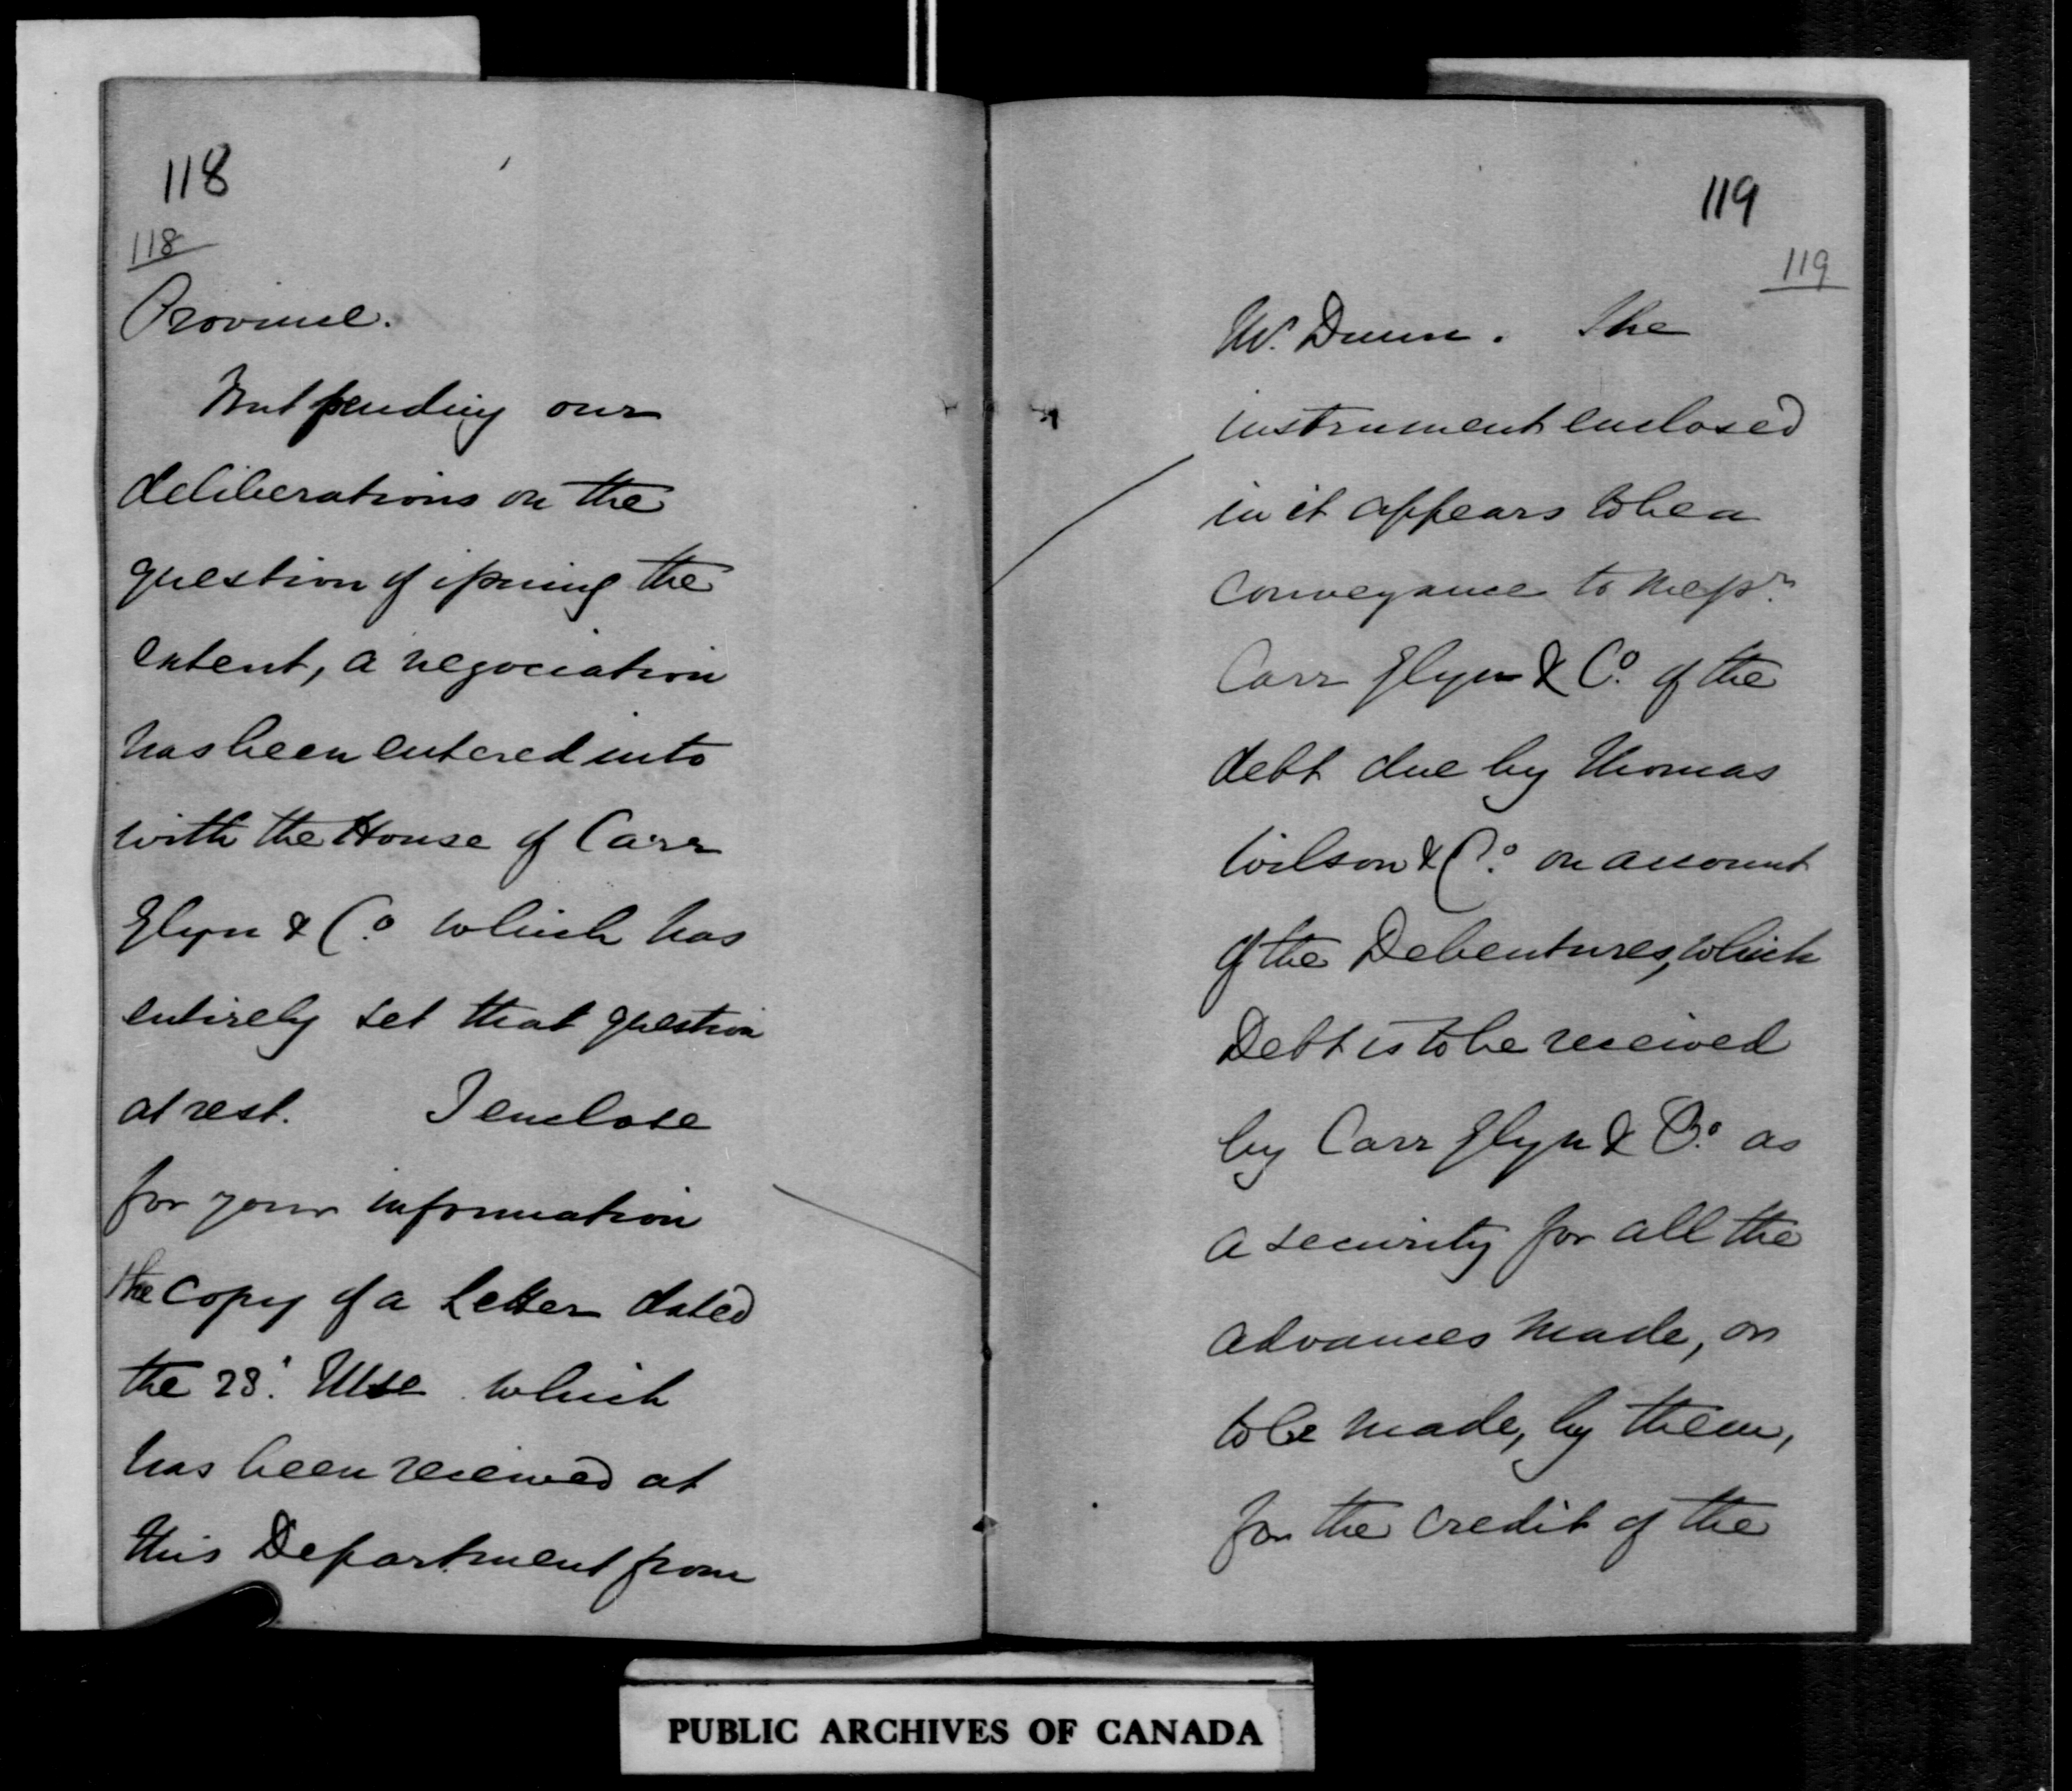 118
118
Province.
But pending our
deliberations on the
question of issuing the
extent, a negociation
has been entered into
with the House of Carr
Glyn & Co. which has
entirely set that question
at rest. I enclose
for your information
the copy of a Letter dated
the 23. Ulto which
has been received at
this Department from
119
119
Mr. Dunn. The
instrument enclosed
in it appears to be a
conveyance to Messrs.
Carr Glyn & Co. of the
debt due by Thomas
Wilson & Co. on account
of the Debentures, which
Debt is to be received
by Carr Glyn & Co. as
a security for all the
advances made, or
to be made, by them,
for the credit of the
PUBLIC ARCHIVES OF CANADA